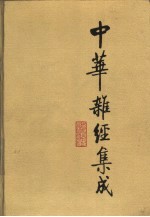 中華雜經集成